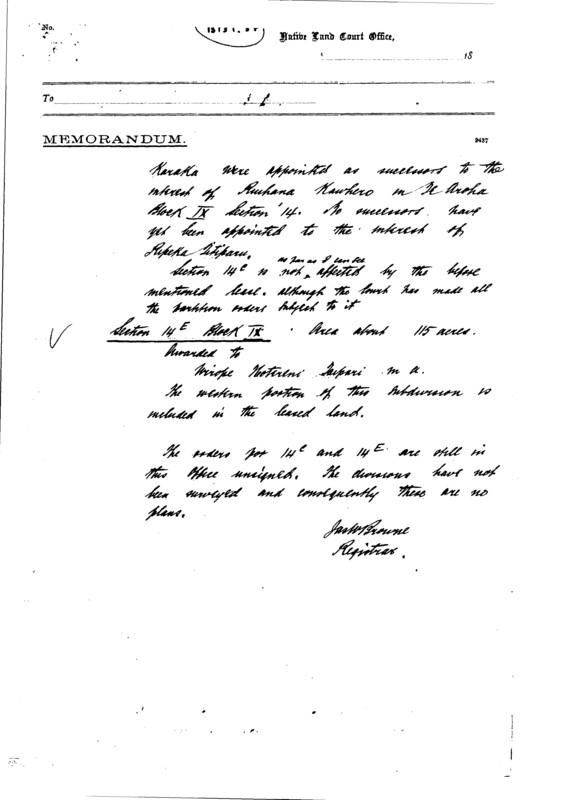 No.
Native Land Court Office,
18
To
MEMORANDUM.
2437
Karaka were appointed as successors to the
interest of Ruihana Kawhero in Te Aroha
Block IX Section 14. No successors have
yet been appointed to the interest of
Ripeka Titiparu.
as far as I can see
Section 14C is not affected by the before
mentioned lease. although the Court has made all
the partition orders subject to it
Section 14E Block IX Area about 115 acres.
Awarded to
Wirope Hoterini Taipari m a.
The western portion of this subdivision is
included in the leased land.
The orders for 14C and 14E are still in
this Office unsigned. The divisions have not
been surveyed and consequently there are no
plans.
Jas W Browne
Registrar.